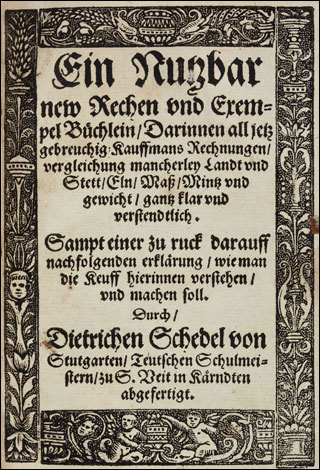 Ein Nutzbar
new Rechen vnd Exem-
pel Büchlein/ Darinnen all jetz
gebreuchig Kauffmans Rechnungen/
vergleichung mancherley Landt vnd
Stett/ Eln/ Maß/ Mintz vnd
gewicht/ gantz klar vnd
verstendtlich.
Sampt einer zu ruck darauff
nachfolgenden erklärung/ wie man
die Keuff hierinnen verstehen/
vnd machen soll.
Durch/
Dietrichen Schedel von
Stutgarten/ Teutschen Schulmei-
stern/ zu S. Veit in Kärndten
abgefertigt.